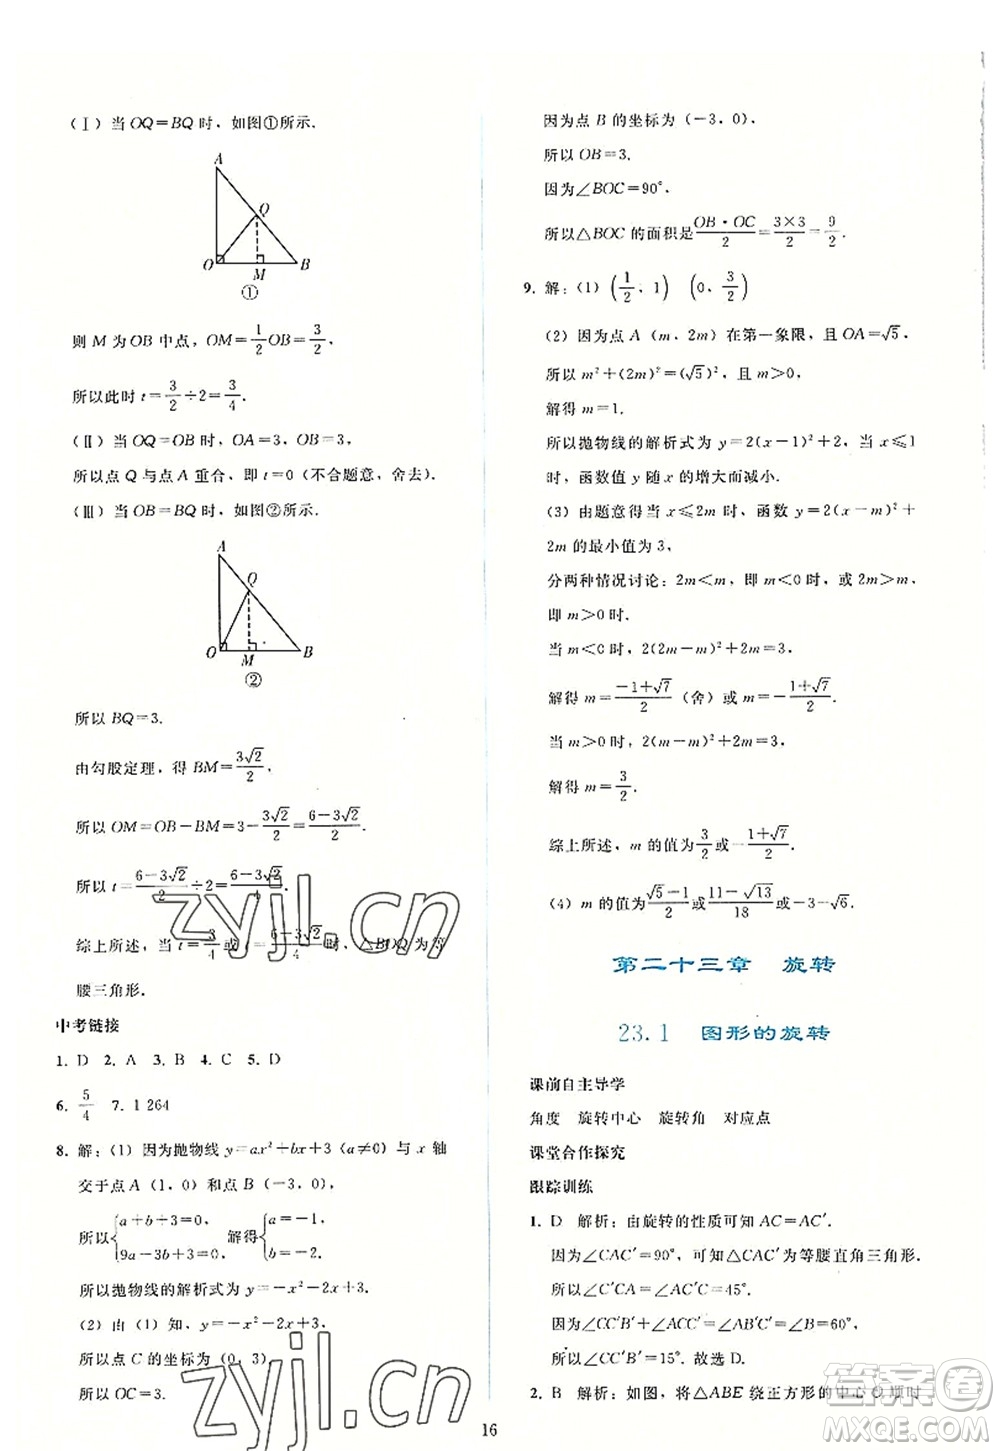 (Ⅰ) 当 OQ=BQ 时, 如图①所示.
A
Q
O M B
①
则 M 为 OB 中点, OM=1/2 OB=3/2,
所以此时 t=3/2÷2=3/4.
(Ⅱ) 当 OQ=OB 时, OA=3, OB=3,
所以点 Q 与点 A 重合, 即 t=0 (不合题意, 舍去).
(Ⅲ) 当 OB=BQ 时, 如图②所示.
A
Q
O M B
②
所以 BQ=3.
由勾股定理, 得 BM=3√2/2,
所以 OM=OB-BM=3-3√2/2=(6-3√2)/2.
所以 t=(6-3√2)/2÷2=(6-3√2)/4.
综上所述, 当 t=3/4 或 t=(6-3√2)/4 时, △BOQ 为等
腰三角形.
中考链接
1. D 2. A 3. B 4. C 5. D
6. 5/4 7. 1 264
8. 解: (1) 因为抛物线 y=ax²+bx+3 (a≠0) 与 x 轴
交于点 A (1, 0) 和点 B (-3, 0),
所以{a+b+3=0, 9a-3b+3=0. 解得{a=-1, b=-2.
所以抛物线的解析式为 y=-x²-2x+3.
(2) 由 (1) 知, y=-x²-2x+3,
所以点 C 的坐标为 (0, 3),
所以 OC=3.
因为点 B 的坐标为 (-3, 0),
所以 OB=3.
因为∠BOC=90°,
所以△BOC 的面积是 OB·OC/2=3×3/2=9/2.
9. 解: (1) (1/2, 1) (0, 3/2)
(2) 因为点 A (m, 2m) 在第一象限, 且 OA=√5,
所以 m²+(2m)²=(√5)², 且 m>0,
解得 m=1.
所以抛物线的解析式为 y=2(x-1)²+2, 当 x≤1
时, 函数值 y 随 x 的增大而减小.
(3) 由题意得当 x≤2m 时, 函数 y=2(x-m)²+
2m 的最小值为 3,
分两种情况讨论: 2m<m, 即 m<0 时, 或 2m>m,
即 m>0 时.
当 m<0 时, 2(2m-m)²+2m=3,
解得 m=(-1+√7)/2 (舍) 或 m=-(1+√7)/2.
当 m>0 时, 2(m-m)²+2m=3,
解得 m=3/2.
综上所述, m 的值为 3/2 或-(1+√7)/2.
(4) m 的值为(√5-1)/2或(11-√13)/18或-3-√6.
第二十三章 旋转
23.1 图形的旋转
课前自主导学
角度 旋转中心 旋转角 对应点
课堂合作探究
跟踪训练
1. D 解析: 由旋转的性质可知 AC=AC′.
因为∠CAC′=90°, 可知△CAC′为等腰直角三角形.
所以∠C′CA=∠AC′C=45°.
因为∠CC′B′+∠AC′B′=∠B=60°,
所以∠CC′B′=15°. 故选 D.
2. B 解析: 如图, 将△ABE 绕正方形的中心O顺时
16
zyjl.cn
答案圈
MXQE.COM